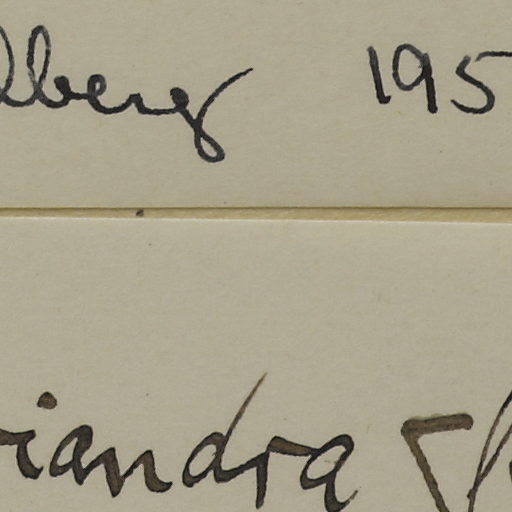 lberg 195
iandra